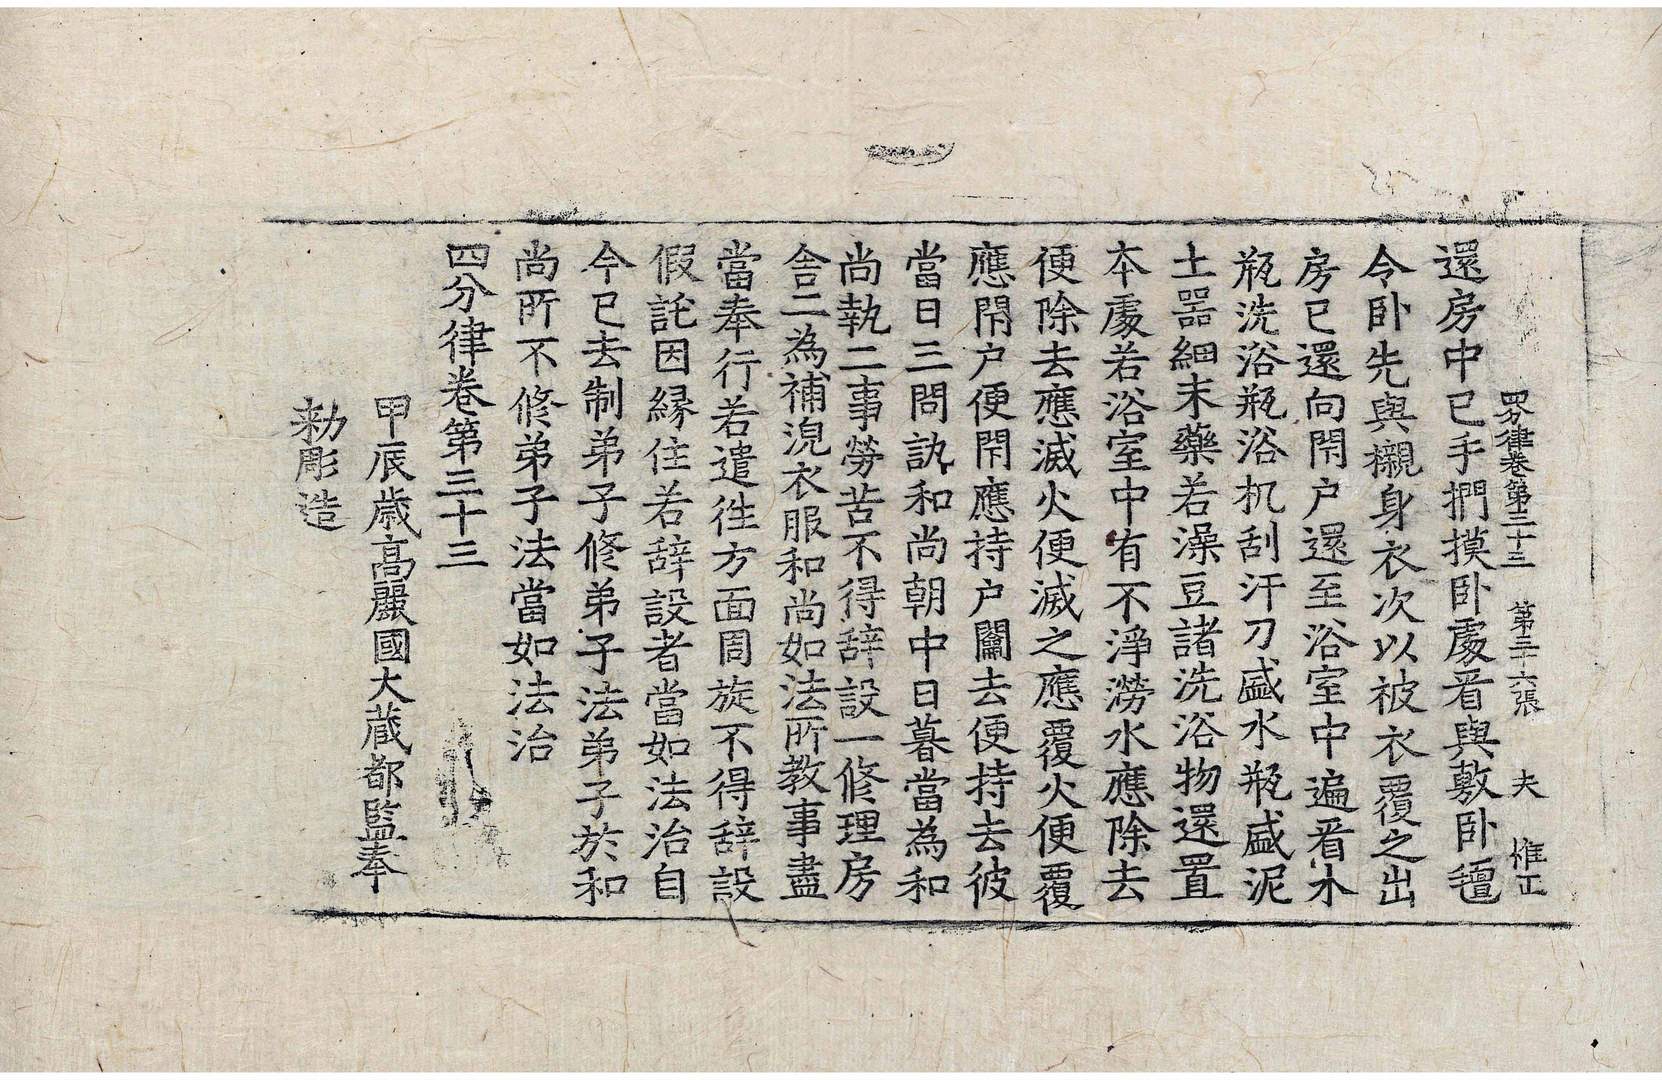 四分律卷第三十三 第三十六張 夫 惟正
還房中已手捫摸卧處看與敷卧氊
令卧先與襯身衣次以被衣覆之出
房已還向閇户還至浴室中遍看水
瓶洗浴瓶浴机刮汗刀盛水瓶盛泥
土器細末藥若澡豆諸洗浴物還置
本處若浴室中有不淨澇水應除去
便除去應滅火便滅之應覆火便覆
應閇户便閇應持户闔去便持去彼
當日三問訊和尚朝中日暮當為和
尚執二事勞苦不得辞設一修理房
舎二為補浣衣服和尚如法所教事盡
當奉行若遣往方面周旋不得辞設
假託因縁住若辞設者當如法治自
今已去制弟子修弟子法弟子於和
尚所不修弟子法當如法治
四分律卷第三十三
甲辰歳高麗國大蔵都監奉
勑彫造